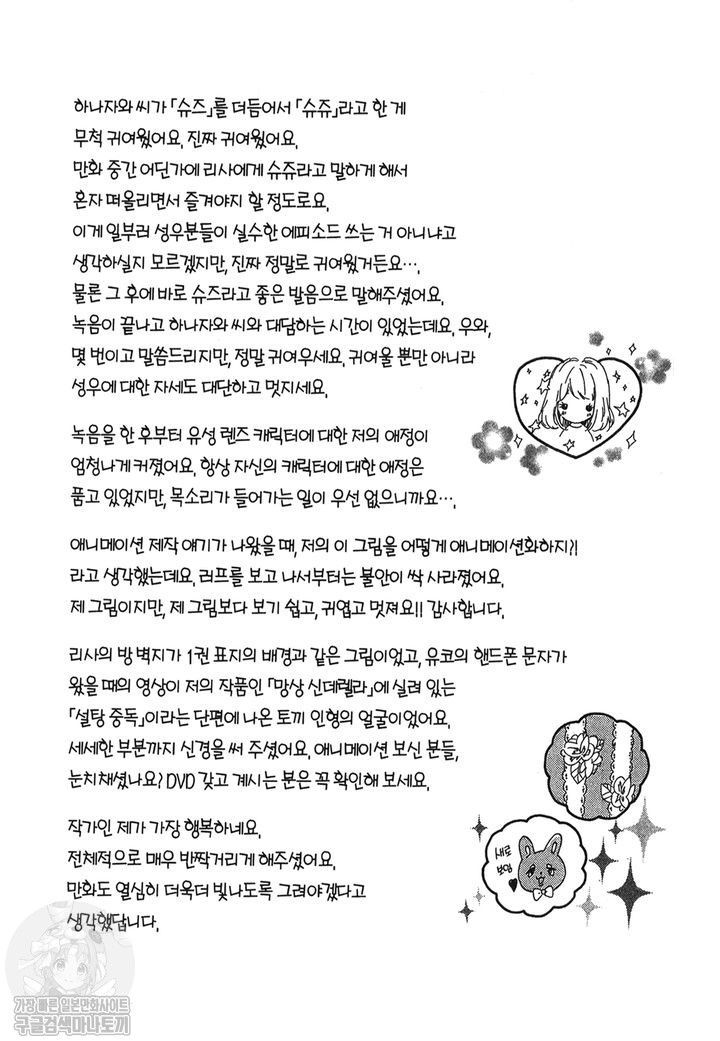 하나자와 씨가 「슈즈」를 더듬어서 「슈쥬」라고 한 게
무척 귀여웠어요. 진짜 귀여웠어요.
만화 중간 어딘가에 리사에게 슈쥬라고 말하게 해서
혼자 떠올리면서 즐겨야지 할 정도로요.
이게 일부러 성우분들이 실수한 에피소드 쓰는 거 아니냐고
생각하실지 모르겠지만, 진짜 정말로 귀여웠거든요….
물론 그 후에 바로 슈즈라고 좋은 발음으로 말해주셨어요.
녹음이 끝나고 하나자와 씨와 대담하는 시간이 있었는데요. 우와,
몇 번이고 말씀드리지만, 정말 귀여우세요. 귀여울 뿐만 아니라
성우에 대한 자세도 대단하고 멋지세요.
녹음을 한 후부터 유성 렌즈 캐릭터에 대한 저의 애정이
엄청나게 커졌어요. 항상 자신의 캐릭터에 대한 애정은
품고 있었지만, 목소리가 들어가는 일이 우선 없으니까요….
애니메이션 제작 얘기가 나왔을 때, 저의 이 그림을 어떻게 애니메이션화하지?!
라고 생각했는데요. 러프를 보고 나서부터는 불안이 싹 사라졌어요.
제 그림이지만, 제 그림보다 보기 쉽고, 귀엽고 멋져요!! 감사합니다.
리사의 방 벽지가 1권 표지의 배경과 같은 그림이었고, 유코의 핸드폰 문자가
왔을 때의 영상이 저의 작품인 「망상 신데렐라」에 실려 있는
「설탕 중독」이라는 단편에 나온 토끼 인형의 얼굴이었어요.
세세한 부분까지 신경을 써 주셨어요. 애니메이션 보신 분들,
눈치채셨나요? DVD 갖고 계시는 분은 꼭 확인해 보세요.
작가인 제가 가장 행복하네요.
전체적으로 매우 반짝거리게 해주셨어요.
만화도 열심히 더욱더 빛나도록 그려야겠다고
생각했답니다.
새로
보임
가장 빠른 일본만화사이트
구글검색마나토끼